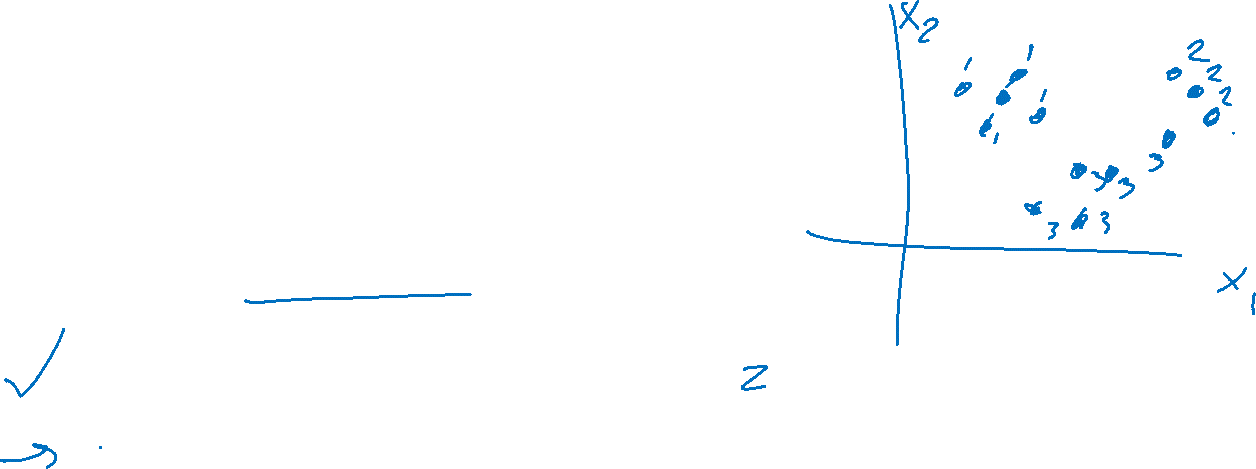 X2
1 1 2
1 1 2 2
3
3 3
3 3
X1
Z